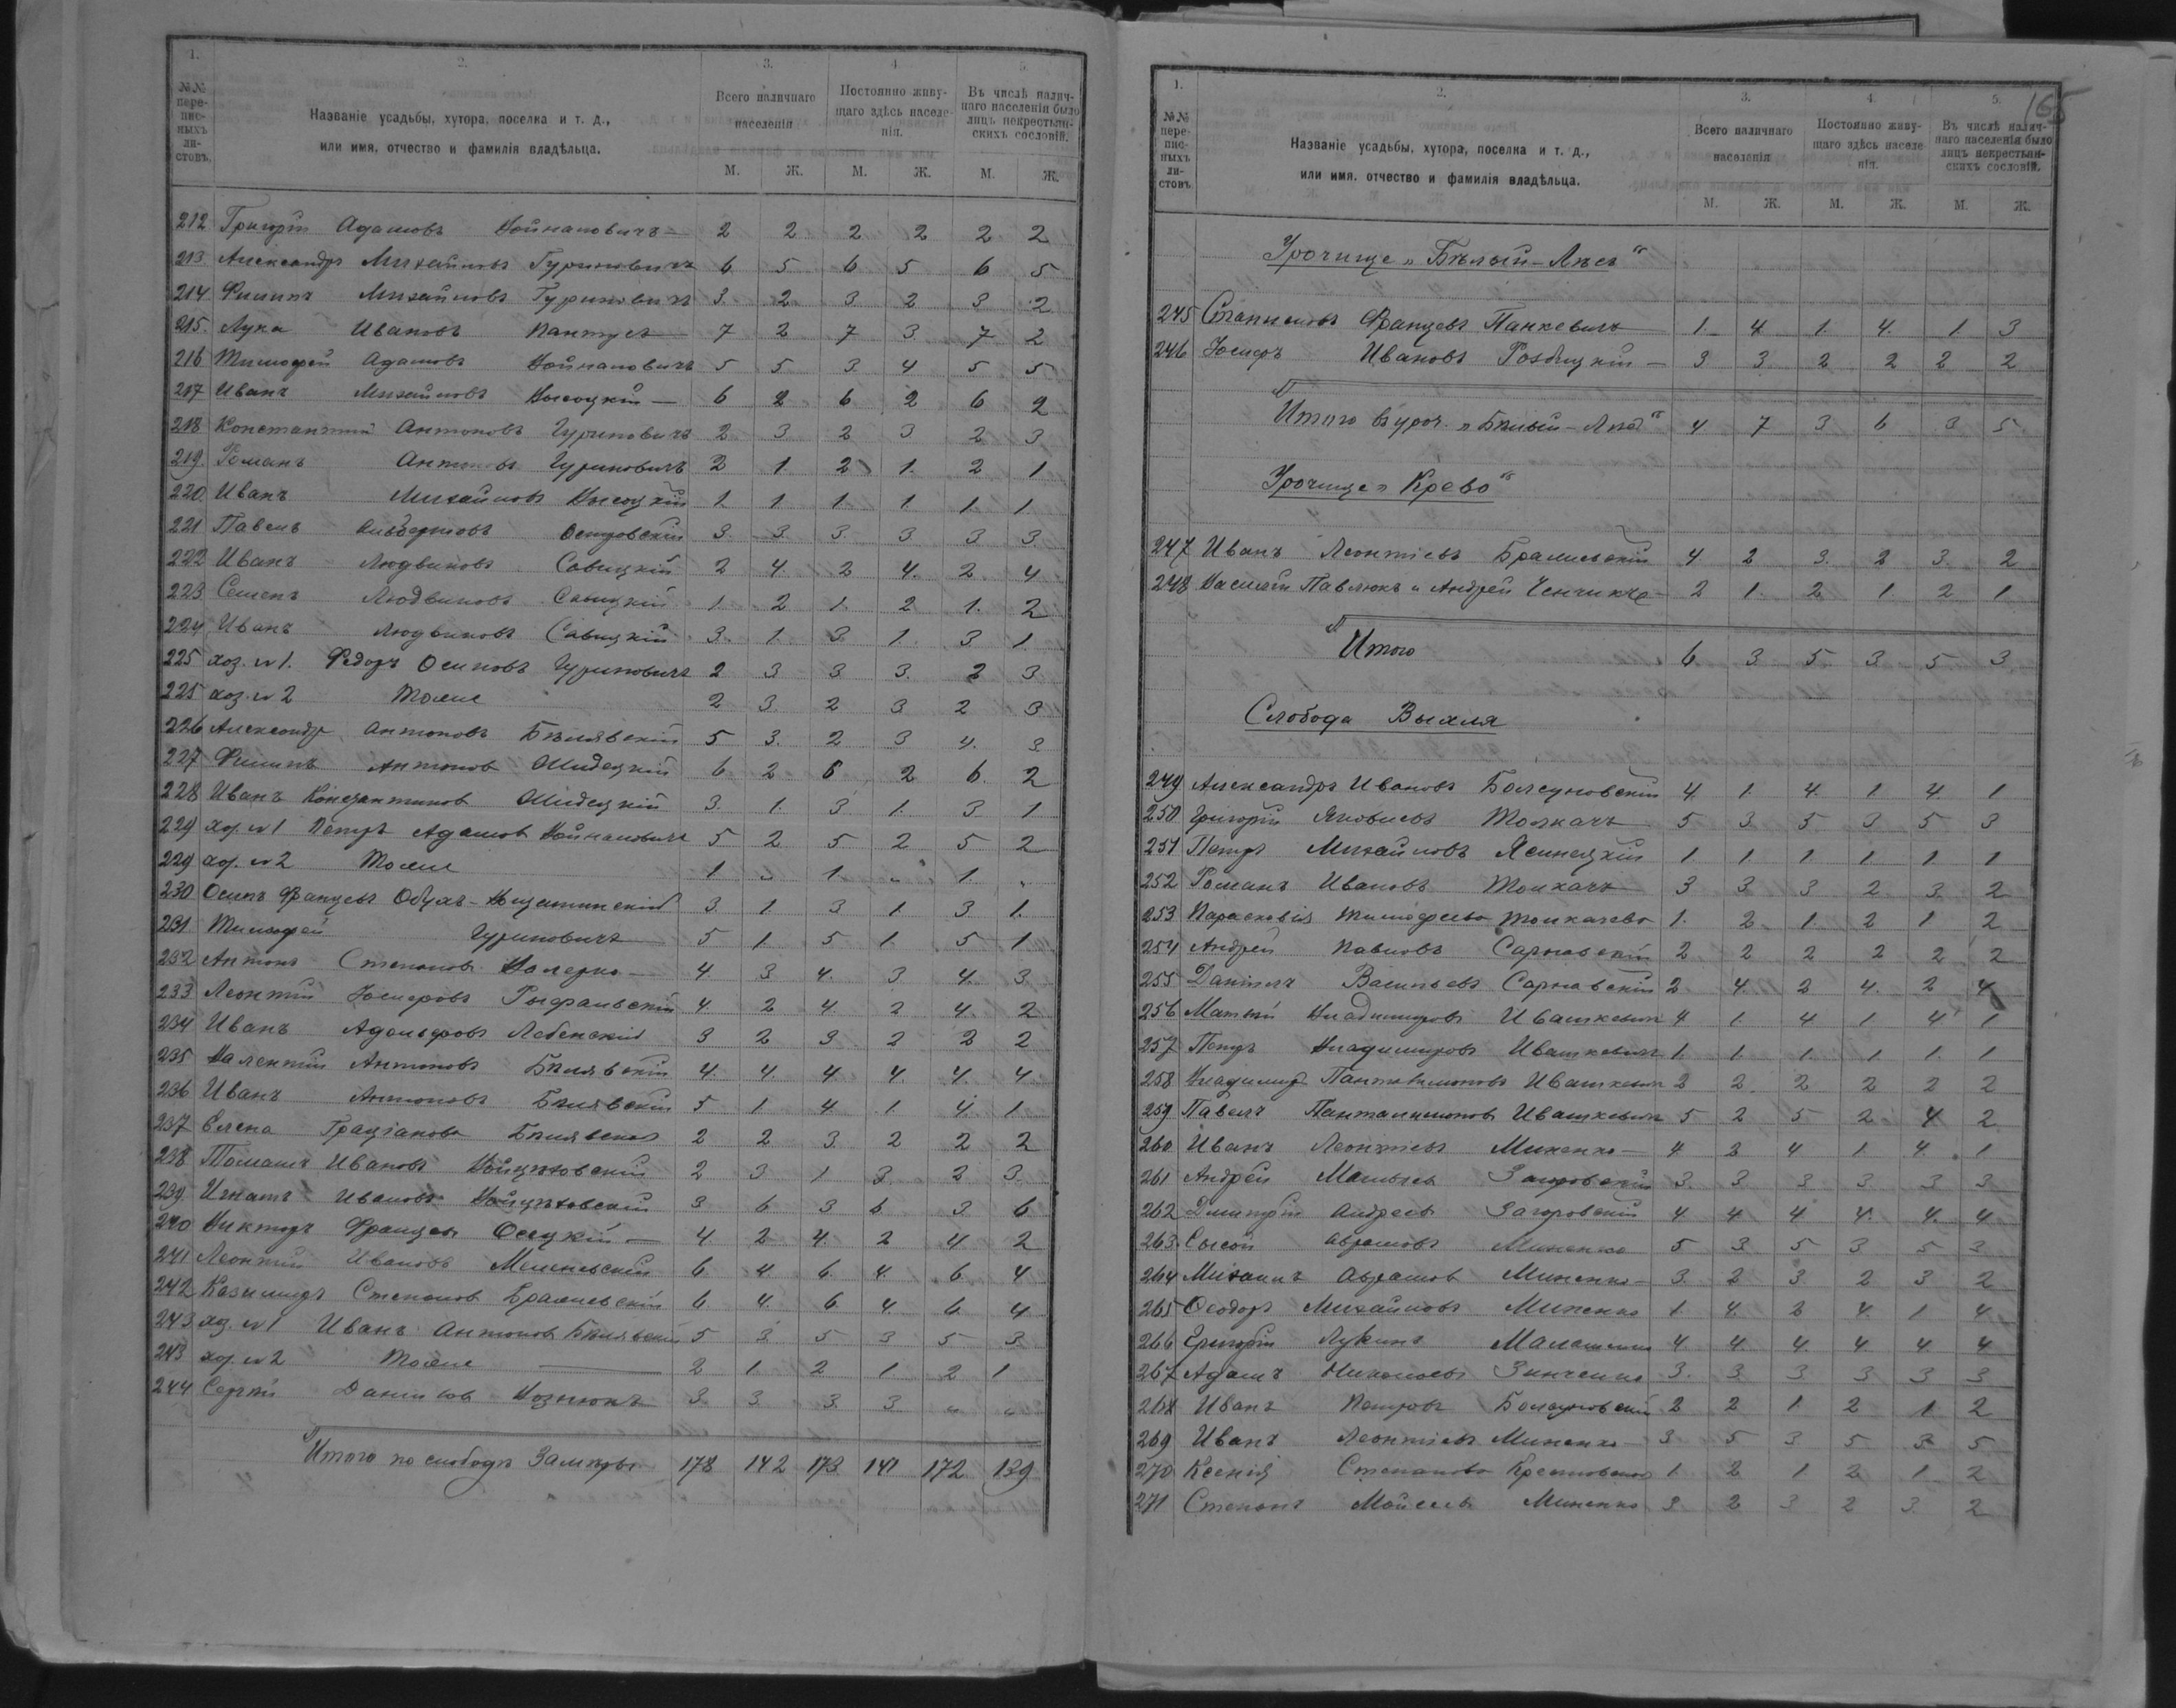 1. 2. 3. 4. 5.
№№ переписныхъ листовъ.
Названіе усадьбы, хутора, поселка и т. д., или имя, отчество и фамилія владѣльца.
Всего наличнаго населенія
Постоянно живущаго здѣсь населенія.
Въ числѣ наличнаго населенія было лицъ некрестьянскихъ сословій.
М. Ж. М. Ж. М. Ж.
212 Григорій Адамовъ Войнаповичъ 2 2 2 2 2 2
213. Александръ Михайловъ Гуриновичъ 6 5 6 5 6 5
214 Филипъ Михайловъ Гуриновичъ 3. 2 3 2 3 2
215. Лука Ивановъ Пантусъ 7 2 7 3 7 2
216 Тимофей Адамовъ Войнаповичъ 5 5 3 4 5 5
217 Иванъ Михайловъ Высоцкій 6 2 6 2 6 2
218 Константинъ Антоновъ Гуриновичъ 2 3 2 3 2 3
219. Романъ Антоновъ Гуриновичъ 2 1. 2 1. 2 1
220. Иванъ Михайловъ Высоцкій 1. 1 1. 1 1. 1
221 Павелъ Альбертовъ Островскій 3. 3. 3. 3 3 3.
222 Иванъ Людвиковъ Савицкій 2 4. 2 4. 2 4
223 Семенъ Людвиковъ Савицкій 1 2 1. 2 1. 2
224 Иванъ Людвиковъ Савицкій 3. 1. 3 1. 3 1
225 хоз. №1. Федоръ Осиповъ Гуриновичъ 2 3 3 3. 2 3
225 хоз. №2 Тоже 2 3. 2 3 2 3
226 Александръ Антоновъ Бѣлявскій 5 3. 2 3 4. 3
227 Филипъ Антонов Шидецкій 6. 2 6 2 6. 2
228 Иванъ Константинов Шидецкій 3. 1. 3 1. 3 1
229 хоз. №1 Петръ Адамов Войнаповичъ 5 2 5 2 5 2
229 хоз. №2 Тоже 1 " 1. " 1. "
230 Осипъ Францевъ Обухъ- 3. 1. 3 1. 3 1.
231 Тимофей Гуриновичъ 5 1. 5 1. 5 1
232 Антонъ Степанов 4. 3 4. 3 4. 3
233 Леонтій Іосифовъ 4. 2 4. 2 4. 2
234 Иванъ Адольфовъ 3 2 3 2 2 2
235 Валентій Антоновъ Бѣлявскій 4. 4. 4. 4. 4. 4
236 Иванъ Антоновъ Бѣлявскій 5 1 4 1 4. 1
237 Елена Граціанова Бѣлявская 2 2 3. 2 2 2
238 Томашъ Ивановъ Войцѣховскій 2 3 1 3. 2 3.
239. Игнатъ Ивановъ Войцѣховскій 3 6 3 6 3 6
240 Викторъ Францевъ Осецкій 4 2 4. 2 4 2
241 Леонтій Ивановъ 6. 4 6. 4. 6. 4
242 Казимиръ Степанов Брамевскій 6 4. 6. 4. 6. 4
243 хоз. №1 Иванъ Антонов Бѣлявскій 5 3 5 3 5 3.
243 хоз. №2 Тоже 2 1. 2 1 2 1
244 Сергѣй Данилов Вознюкъ 3. 3 3. 3 " "
Итого по слободѣ 178 142 173 141 172 139
165
1. 2. 3. 4. 5.
№№ переписныхъ листовъ
Названіе усадьбы, хутора, поселка и т. д., или имя, отчество и фамилія владѣльца.
Всего наличнаго населенія
Постоянно живущаго здѣсь населенія.
Въ числѣ наличнаго населенія было лицъ некрестьянскихъ сословій.
М. Ж. М. Ж. М. Ж.
Урочище „Бѣлый-Лѣсъ"
245 Станиславъ Францевъ Панкевичъ 1. 4. 1. 4. 1. 3
246 Іосифъ Ивановъ 3 3. 2 2 2 2
Итого въ уроч. „Бѣлый-Лѣсъ" 4 7 3 6 3 5
Урочище „Крево"
247 Иванъ Леонтіевъ Брамевскій 4. 2 3. 2 3. 2
248 Василій Павлюкъ и Андрей 2 1. 2 1. 2 1
Итого 6 3 5. 3 5 3
Слобода Выхля
249 Александръ Ивановъ Болсуновскій 4. 1. 4. 1 4. 1
250 Григорій Яковлевъ Толкачъ 5 3 5 3 5 3
251 Петръ Михайловъ Ясинецкій 1. 1 1 1 1 1
252 Романъ Ивановъ Толкачъ 3 3 3 2 3. 2
253 Парасковія Тимофеева Толкачева 1. 2 1. 2 1 2
254 Андрей Павловъ Сарнавскій 2 2 2 2 2 2
255 Даніилъ Васильевъ Сарнавскій 2 4. 2 4. 2 4
256 Матвѣй Владимировъ Ивашкевичъ 4 1. 4 1 4 1
257 Петръ Владимировъ Ивашкевичъ 1. 1. 1. 1. 1. 1
258 Владимиръ Пантелимоновъ Ивашкевич 2 2. 2 2 2 2
259 Павелъ Панталимонов Ивашкевич 5 2 5 2 4 2
260 Иванъ Леонтіевъ Миненко 4 2 4 1 4. 1
261 Андрей Загоровскій 3. 3 3 3. 3 3
262 Дмитрій Андреевъ Загоровскій 4. 4 4 4. 4. 4
263. Сысой Аврамовъ Миненко 5 3 5 3 5 3
264 Михаилъ Аврамов Миненко 3. 2 3 2 3 2
265 Феодоръ Михайловъ Миненко 1. 4. 2 4. 1 4
266 Григорій Лукинъ 4 4. 4. 4. 4 4
267 Адамъ Николаевъ Зинченко 3. 3 3 3 3 3
268 Иванъ Петровъ Болсуновскій 2 2 1. 2 1 2
269 Иванъ Леонтіевъ Миненко 3 5 3 5 3 5
270 Ксенія Степанова 1. 2 1 2 1 2
271 Степанъ Моисеевъ Миненко 3. 2 3 2 3. 2